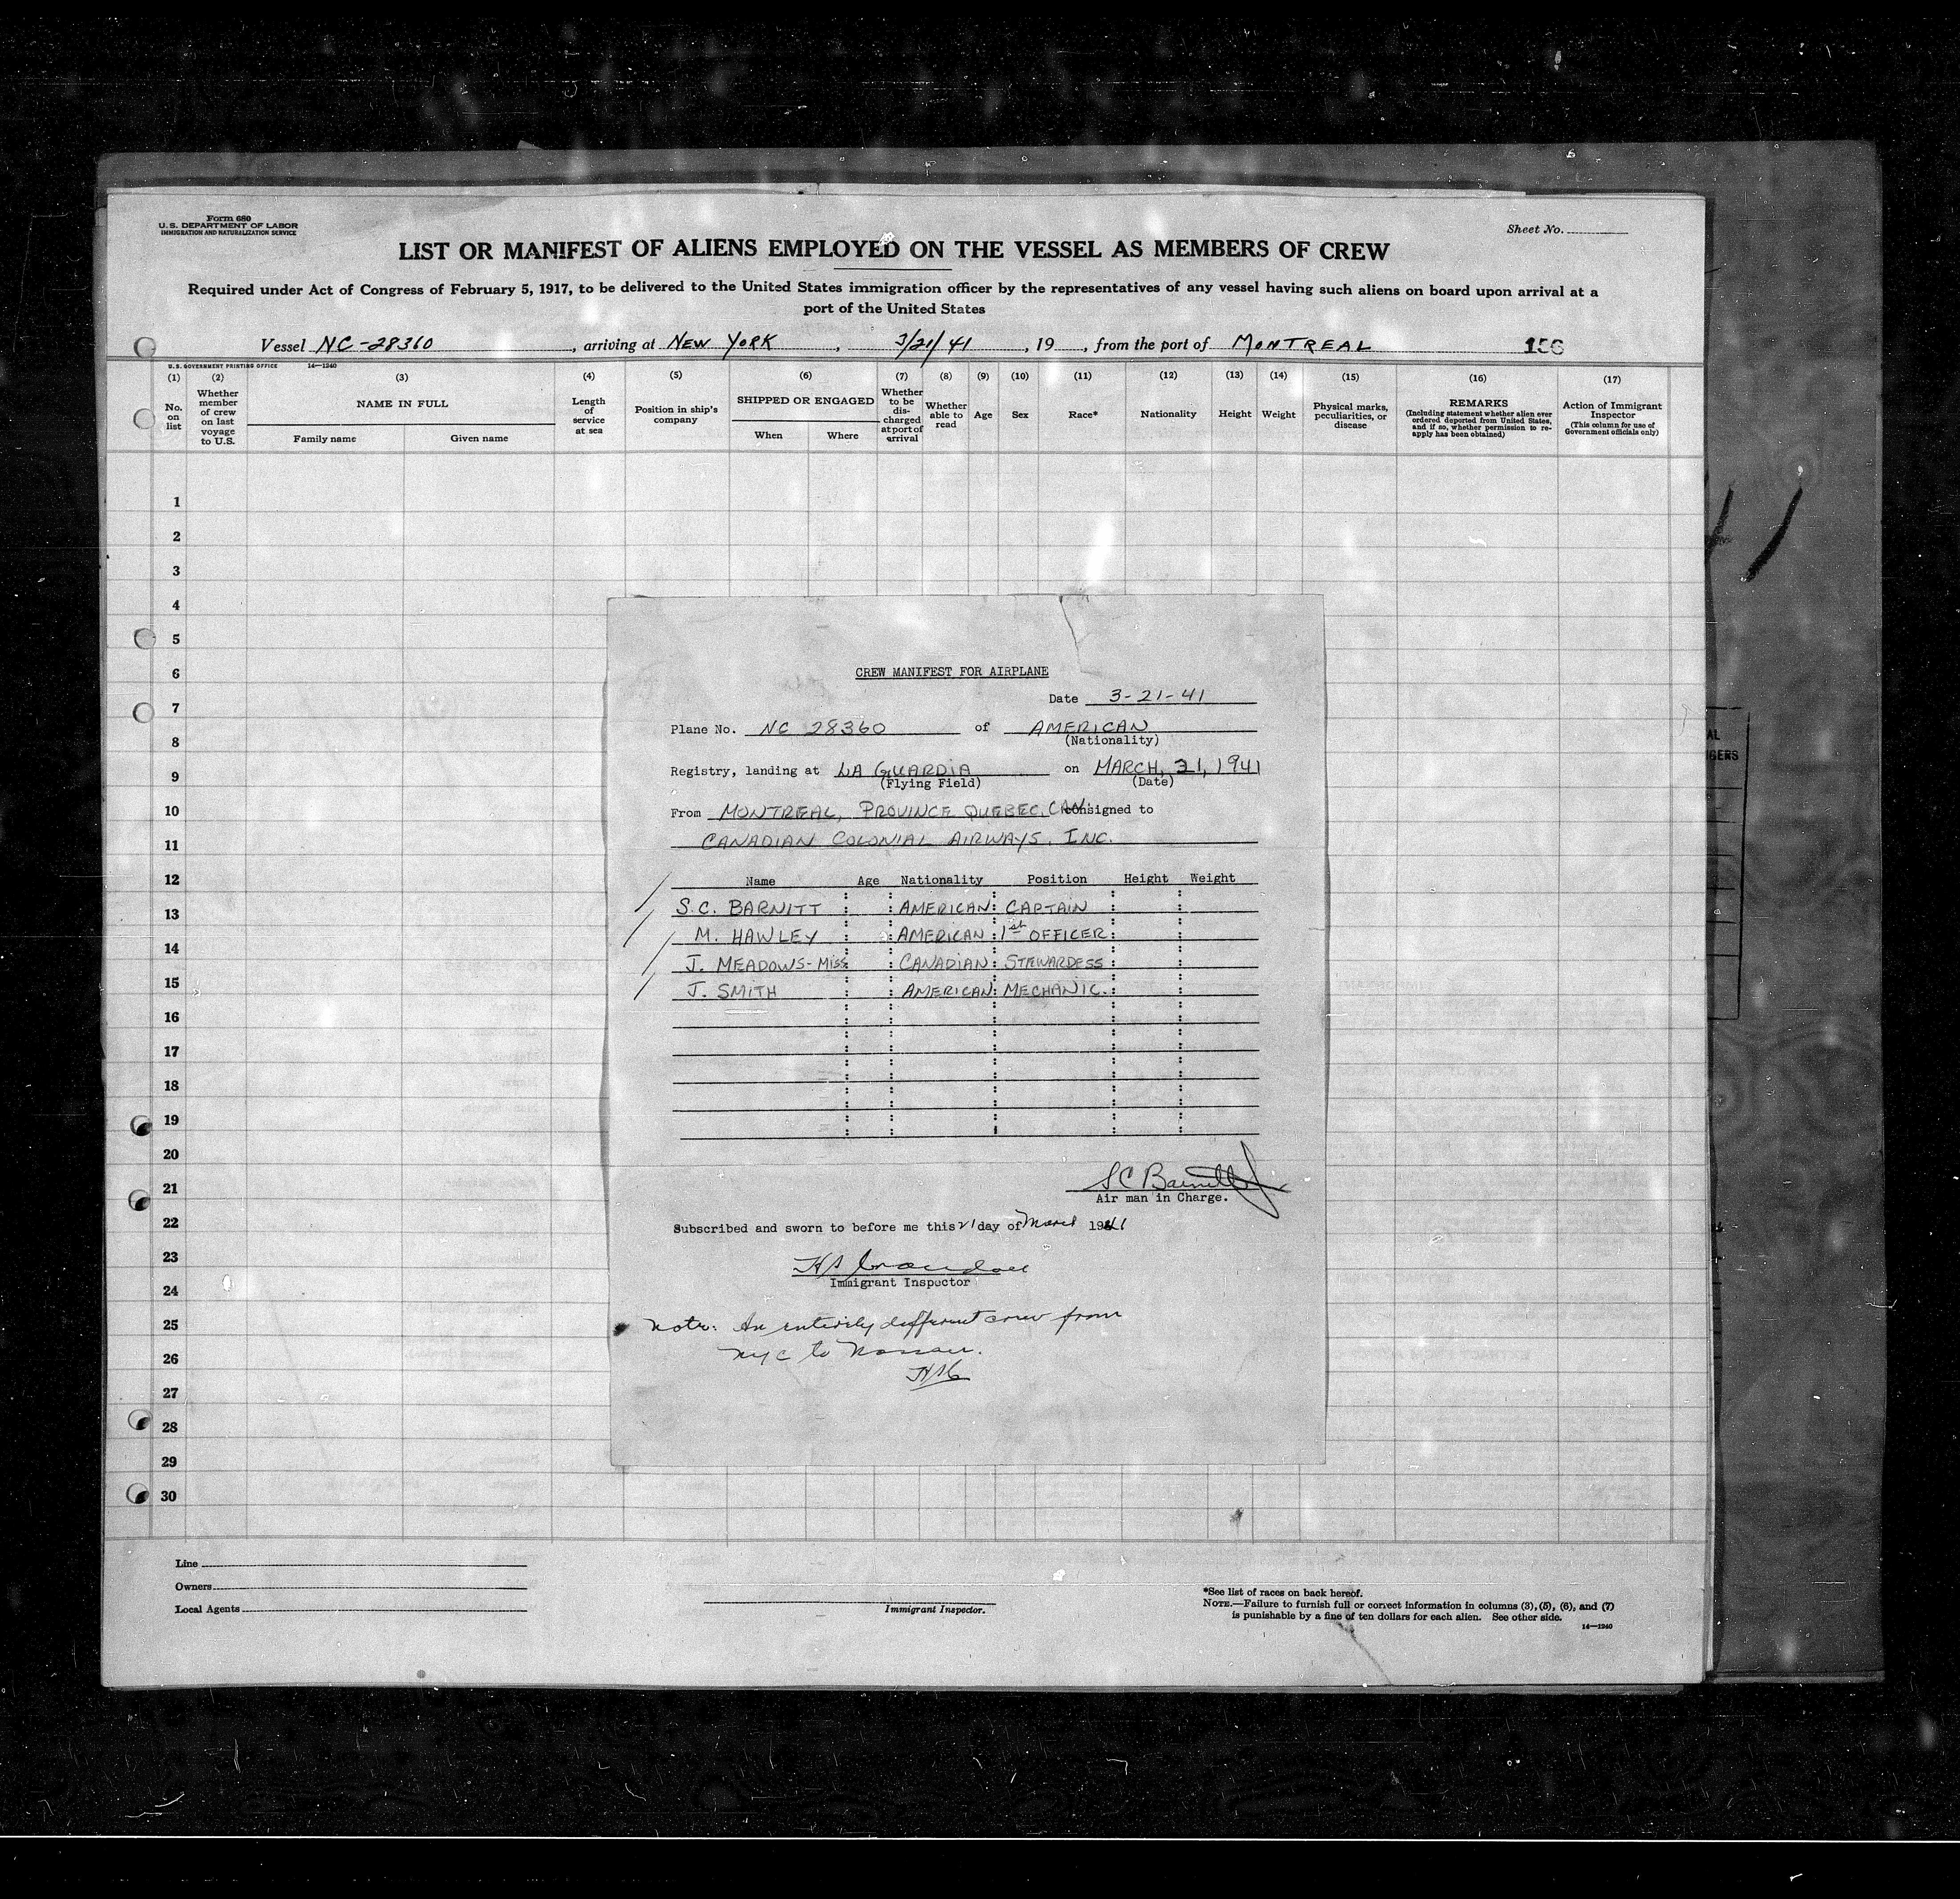 Form 680
U.S. DEPARTMENT OF LABOR
IMMIGRATION AND NATURALIZATION SERVICE
Sheet No.
LIST OR MANIFEST OF ALIENS EMPLOYED ON THE VESSEL AS MEMBERS OF CREW
Required under Act of Congress of February 5, 1917, to be delivered to the United States immigration officer by the representatives of any vessel having such aliens on board upon arrival at a
port of the United States
Vessel NC-28360, arriving at NEW YORK, 3/21/41, 19, from the port of MONTREAL 156
U.S. GOVERNMENT PRINTING OFFICE 14—1240
(1) (2) (3) (4) (5) (6) (7) (8) (9) (10) (11) (12) (13) (14) (15) (16) (17)
No. on list
Whether member of crew on last voyage to U.S.
NAME IN FULL
Family name Given name
Length of service at sea
Position in ship's company
SHIPPED OR ENGAGED
When Where
Whether to be discharged at port of arrival
Whether able to read
Age
Sex
Race*
Nationality
Height
Weight
Physical marks, peculiarities, or disease
REMARKS
(Including statement whether alien ever ordered deported from United States, and if so, whether permission to reapply has been obtained)
Action of Immigrant Inspector
(This column for use of Government officials only)
1
2
3
4
5
6
7
8
9
10
11
12
13
14
15
16
17
18
19
20
21
22
23
24
25
26
27
28
29
30
CREW MANIFEST FOR AIRPLANE
Date 3-21-41
Plane No. NC 28360 of AMERICAN
(Nationality)
Registry, landing at LA GUARDIA on MARCH, 21, 1941
(Flying Field) (Date)
From MONTREAL, PROVINCE QUEBEC, CAN. consigned to
CANADIAN COLONIAL AIRWAYS, INC.
Name Age Nationality Position Height Weight
S.C. BARNITT AMERICAN CAPTAIN
M. HAWLEY AMERICAN 1st OFFICER
J. MEADOWS-MISS CANADIAN STEWARDESS
J. SMITH AMERICAN MECHANIC.
S C Barnitt
Air man in Charge.
Subscribed and sworn to before me this 21 day of March 1941
Immigrant Inspector
Note: An entirely different crew from
NYC to Nassau.
Line
Owners
Local Agents
Immigrant Inspector.
*See list of races on back hereof.
NOTE.—Failure to furnish full or correct information in columns (3), (5), (6), and (7)
is punishable by a fine of ten dollars for each alien. See other side.
14—1240